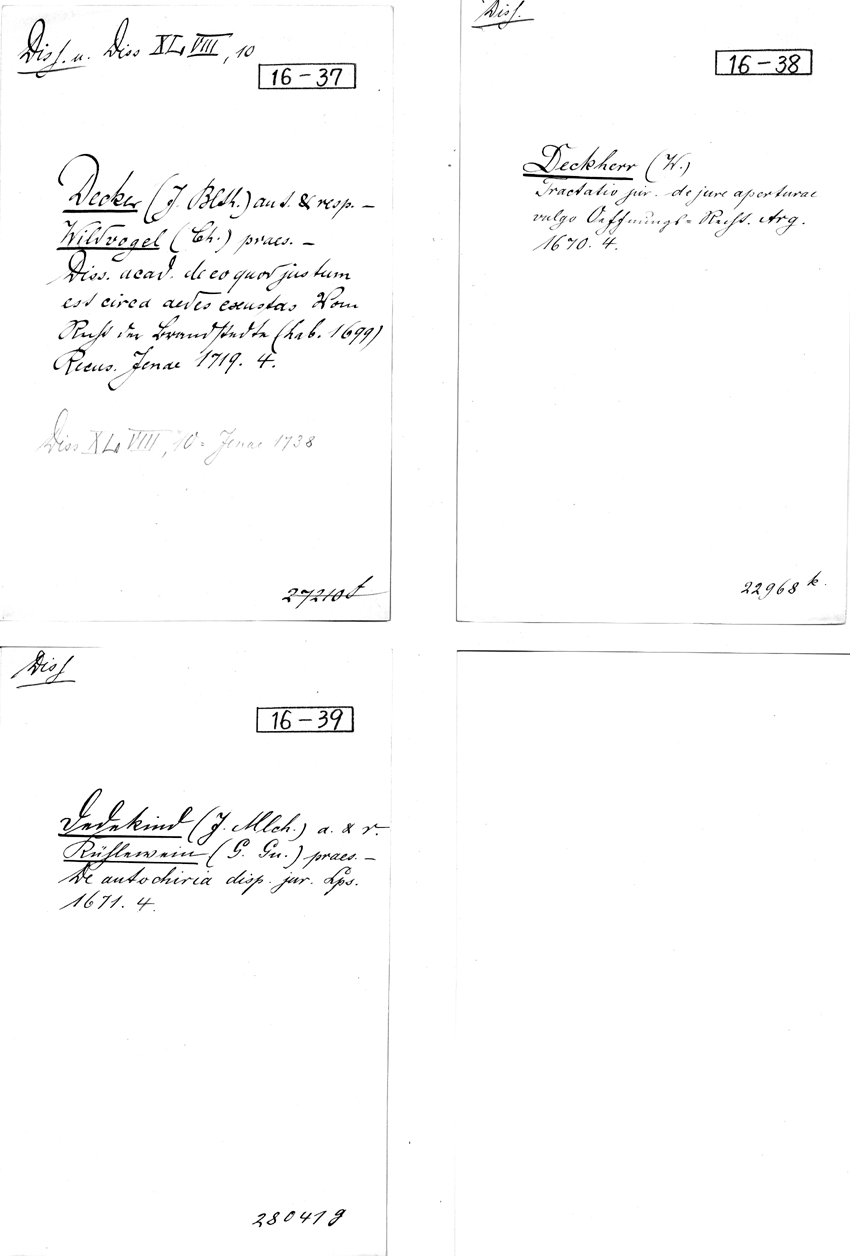 Diss. u. Diss XLVIII, 10
16-37
Decker (J. Blth.) aut. & resp. –
Wildvogel (Ch.) praes. –
Diss. acad. de eo quod justum
est circa aedes exustas Vom
Recht der Brandstedte (hab. 1699)
Recus. Jenae 1719. 4.
Diss XLVIII, 10 = Jenae 1738
27210 t
Diss.
16-38
Deckherr (W.)
Tractatio jur. de jure aperturae
vulgo Oeffnungs-Recht. Arg.
1670. 4.
22968 k.
Diss
16-39
Dedekind (J. Mlch.) a. & r.
Rühlewein (G. Gu.) praes. –
De autochiria disp. jur. Lps.
1671. 4.
28041 g